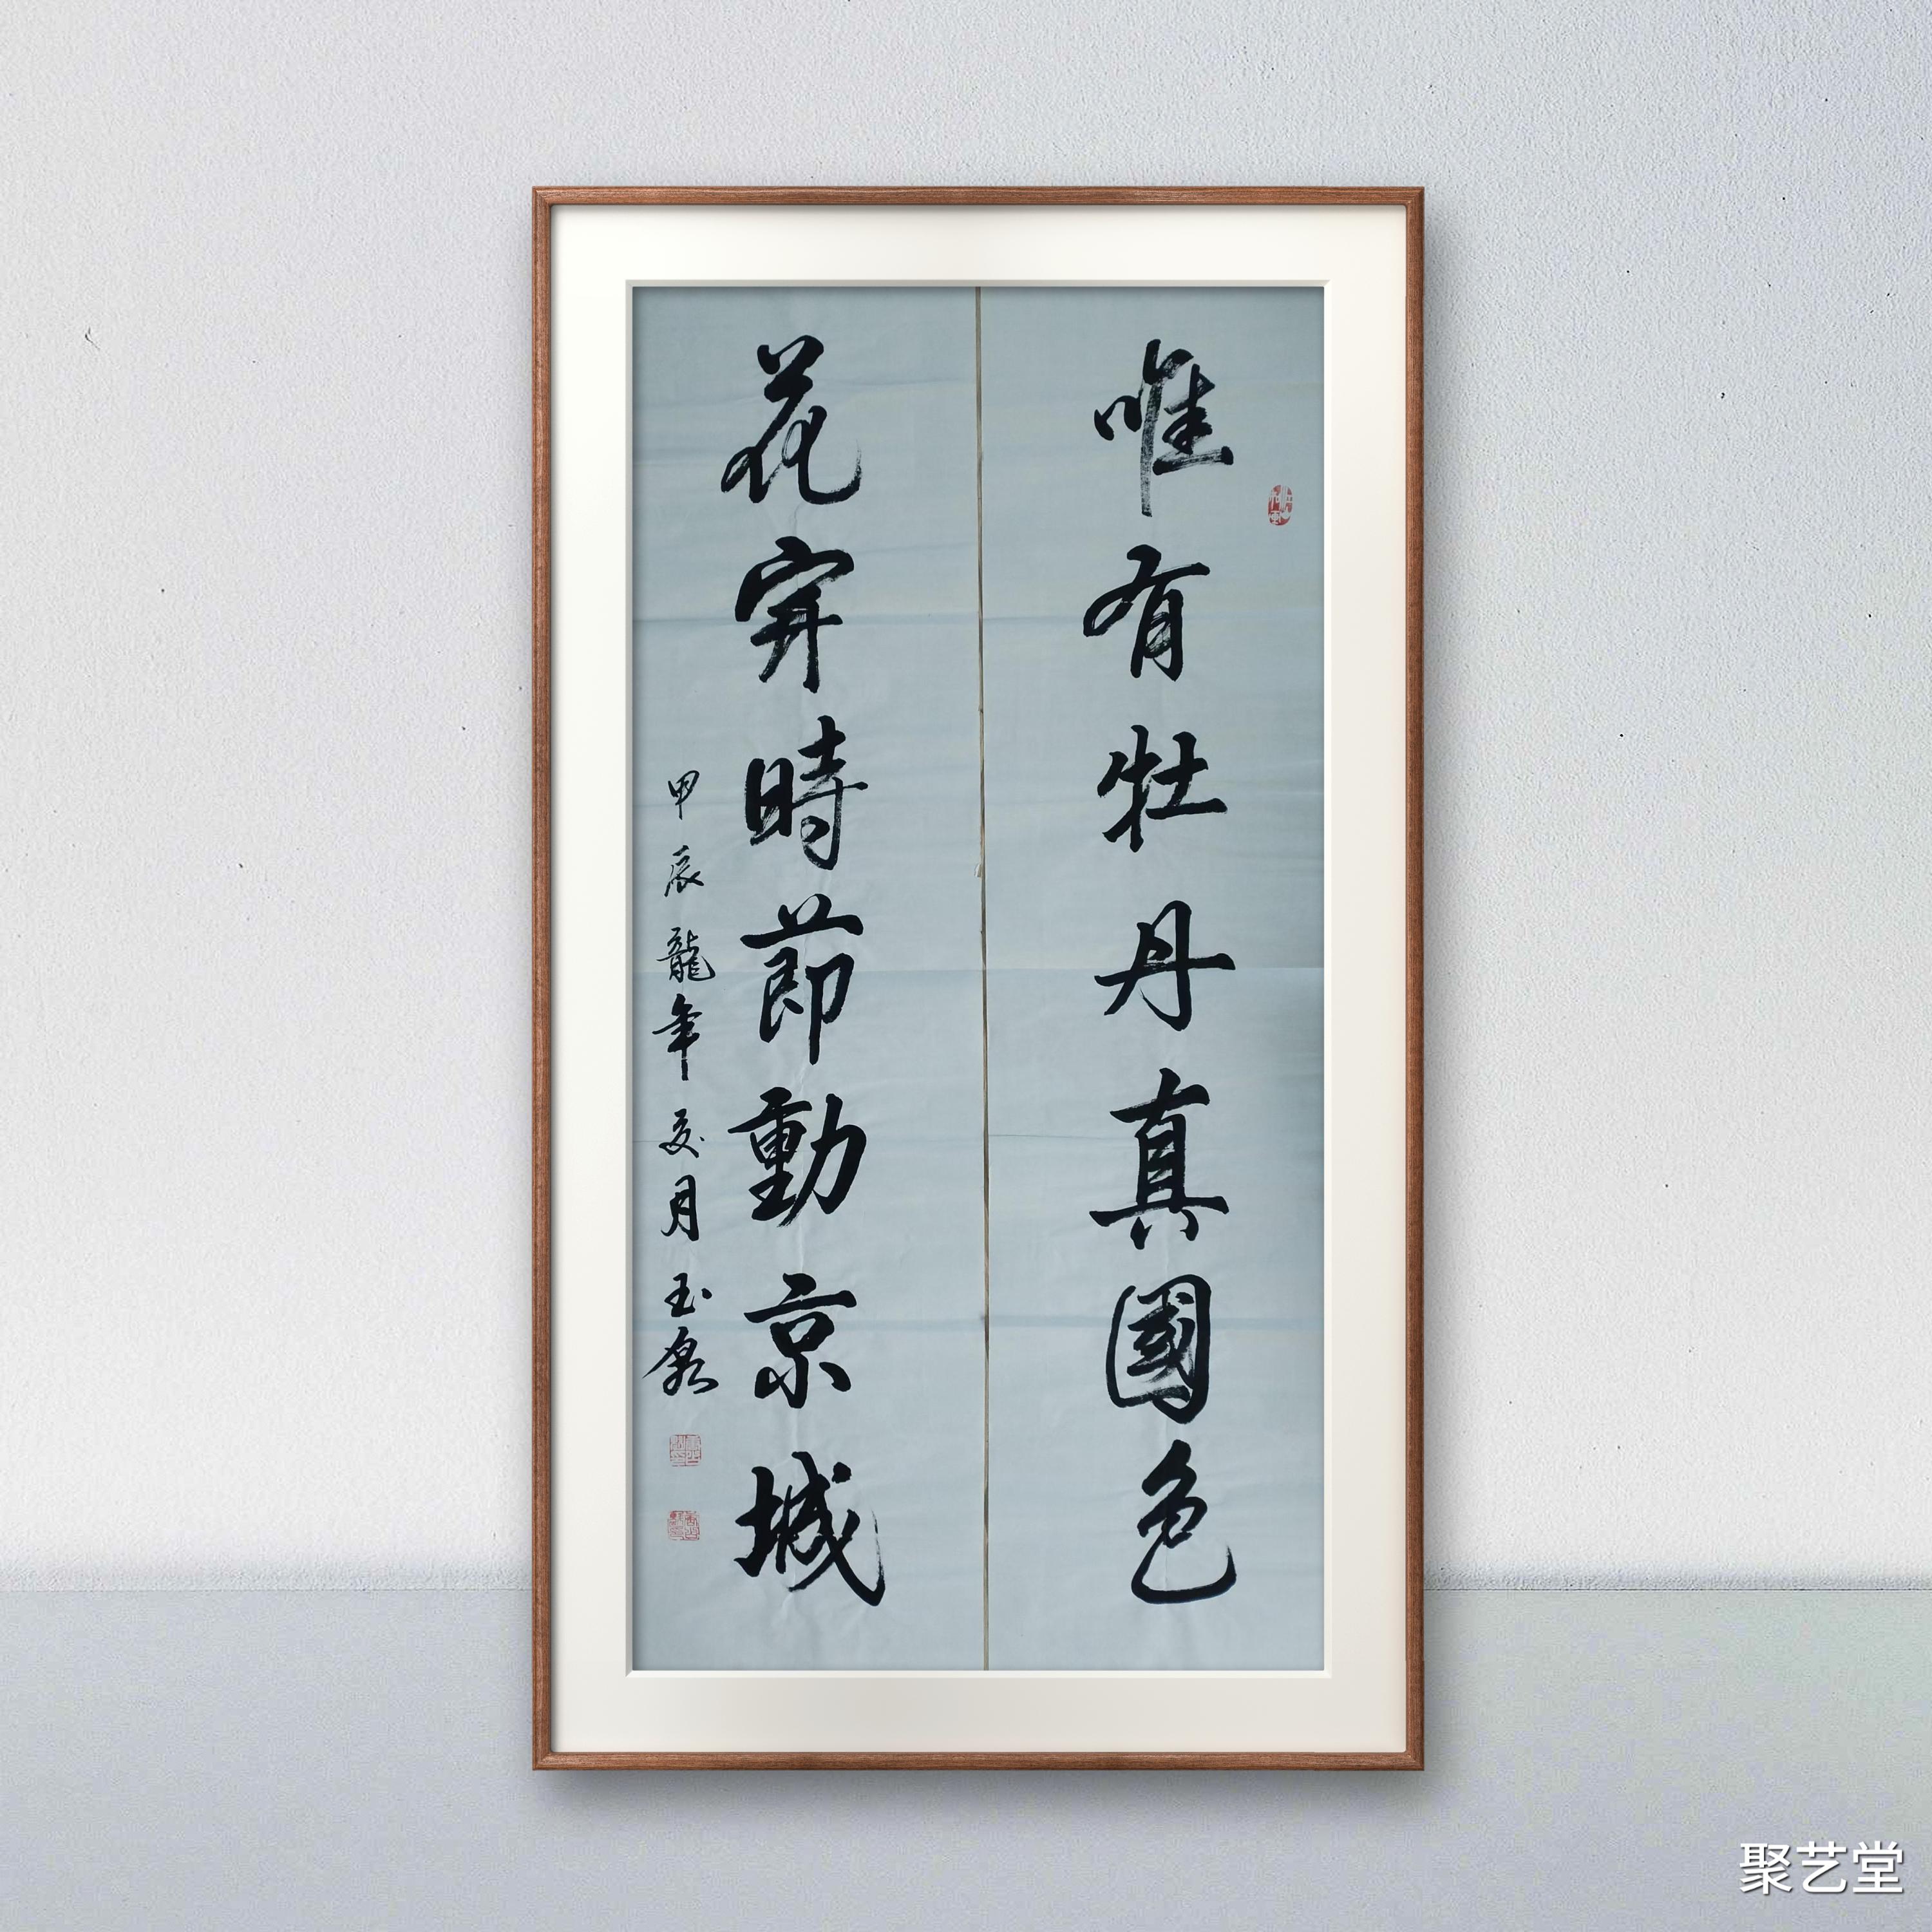 唯有牡丹真國色
花開時節動京城
甲辰龍年夏月玉泉
聚艺堂